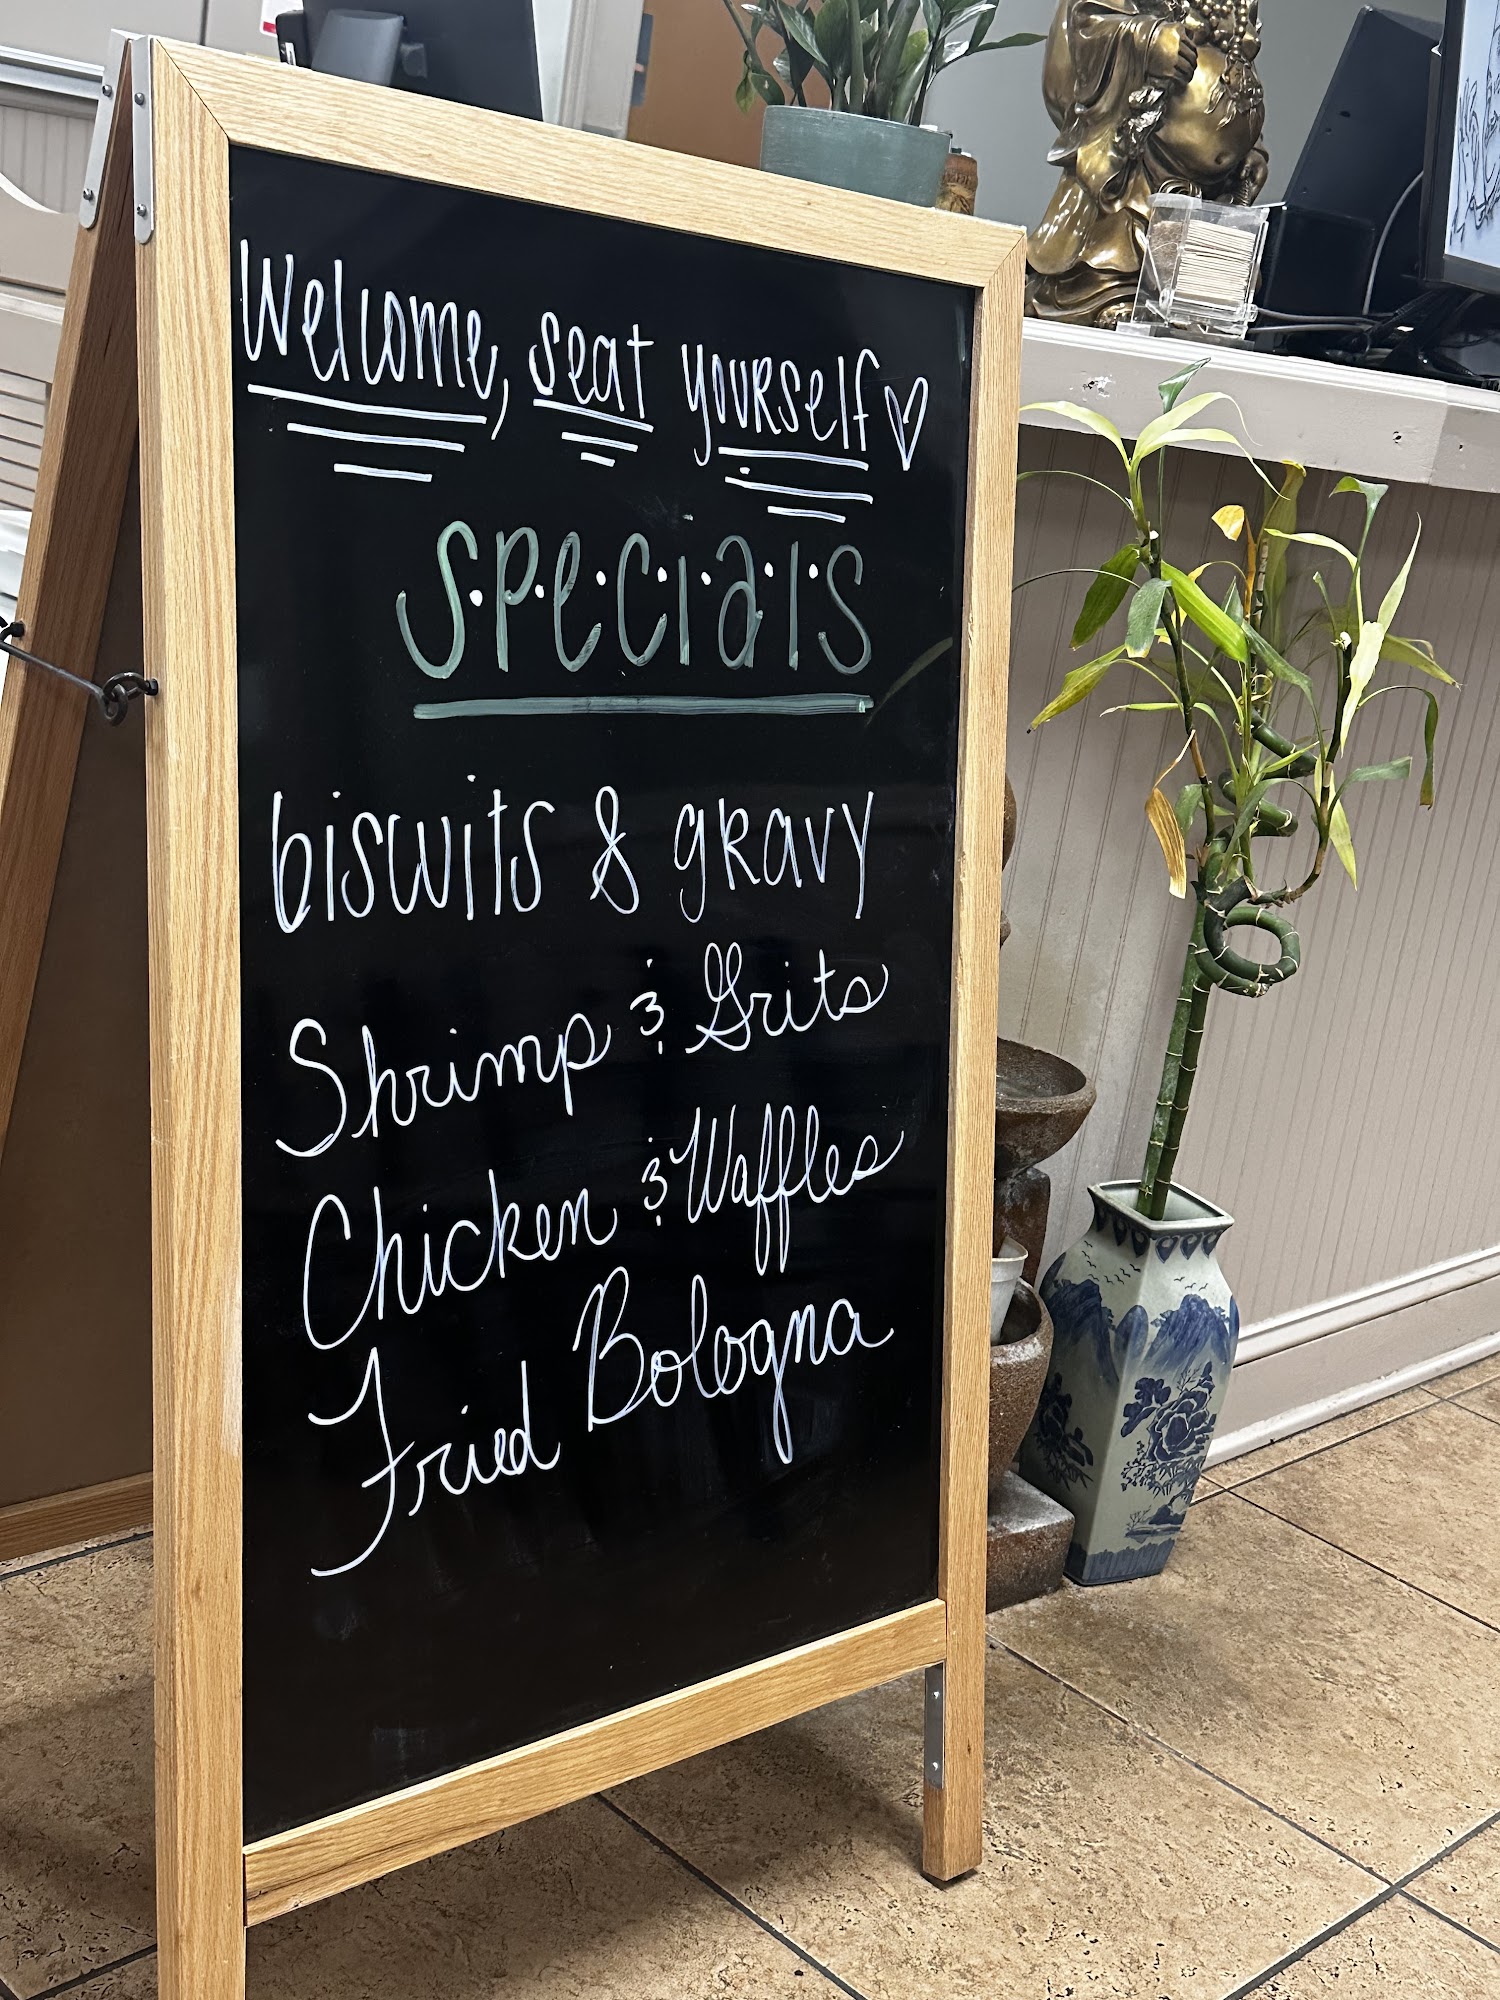 Welcome, seat yourself ♡
s·p·e·c·i·a·l·s
biscuits & gravy
Shrimp & Grits
Chicken & Waffles
Fried Bologna